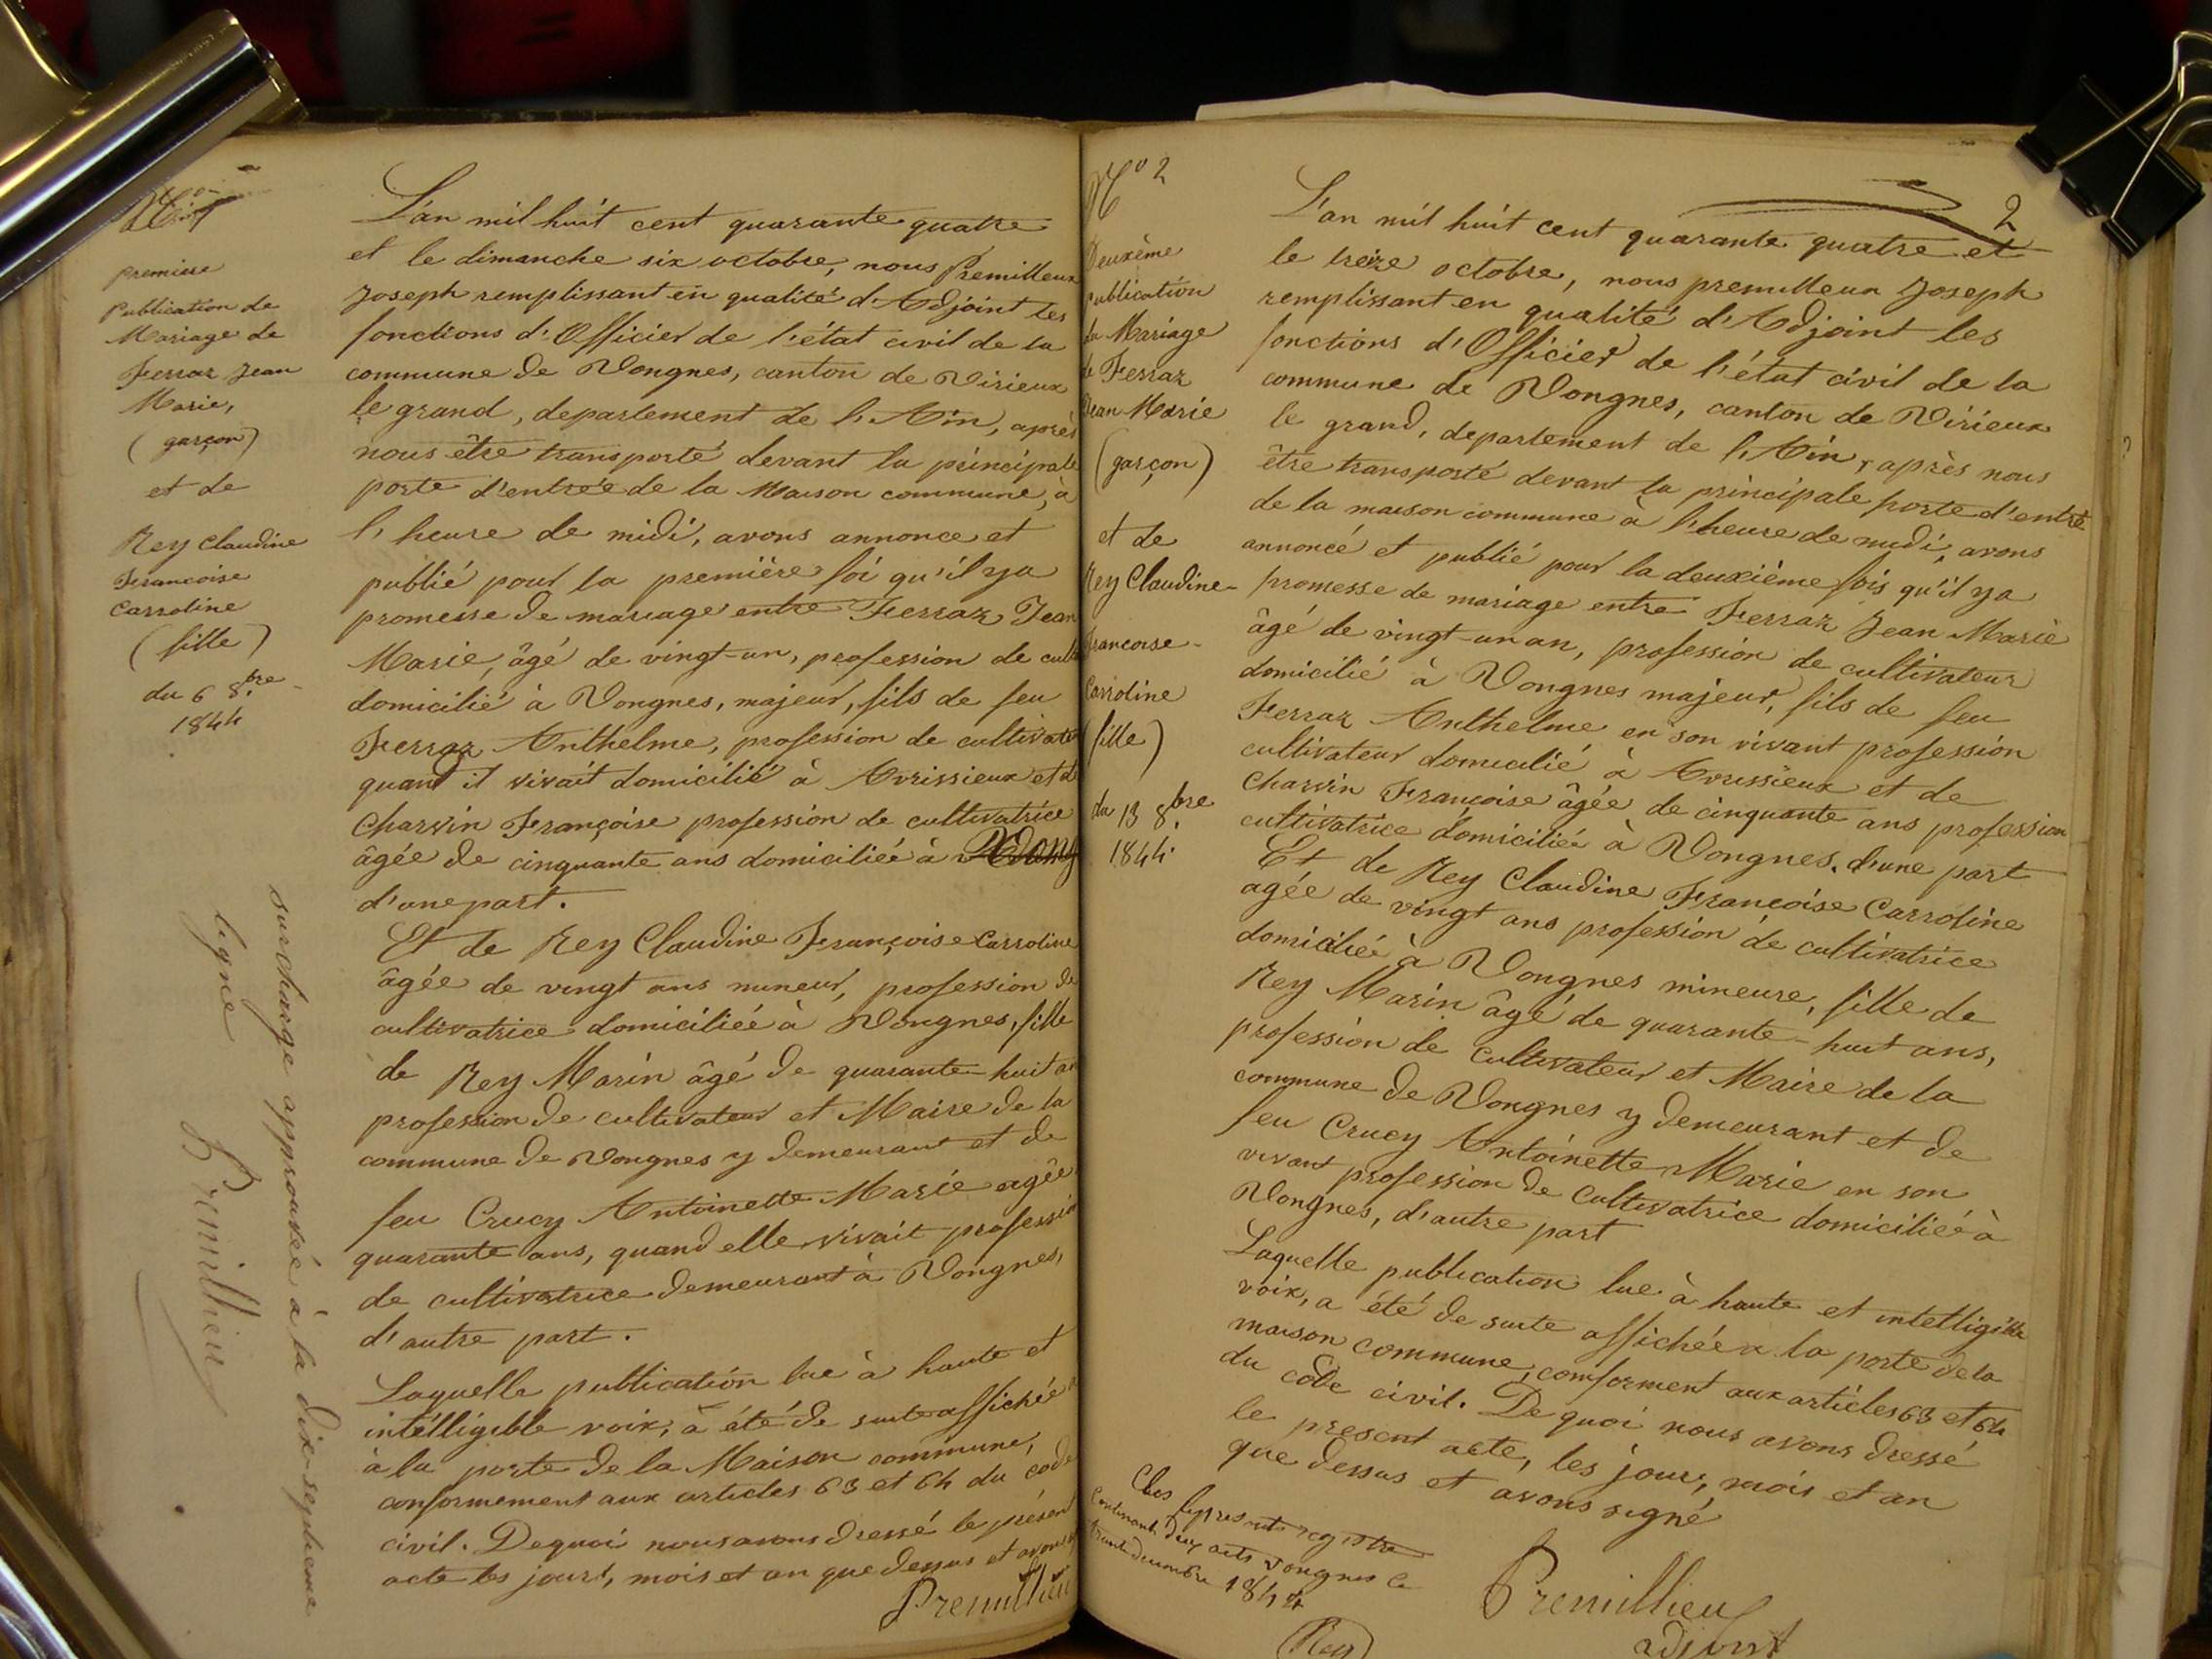 premiere
Publication de
Mariage de
Ferraz Jean
Marie,
(garçon)
et de
Rey Claudine
Francoise
Carroline
(fille)
du 6 8.bre
1844
L'an mil huit cent quarante quatre
et le dimanche six octobre, nous Premillieux
Joseph remplissant en qualité d'Adjoint les
fonctions d'Officier de l'état civil de la
commune de Vongnes, canton de Virieux
le grand, departement de l'Ain, après
nous être transporté devant la principale
porte d'entrée de la Maison commune, à
l'heure de midi, avons annonce et
publié pour la première foi qu'il ya
promesse de mariage entre Ferraz Jean
Marie, âgé de vingt-un, profession de cult
domicilié à Vongnes, majeur, fils de feu
Ferraz Anthelme, profession de cultivate
quand il vivait domicilié à Avrissieux et d
Charvin Françoise profession de cultivatrice
âgée de cinquante ans domiciliée à Vong
d'une part.
Et de Rey Claudine Françoise Carroline
âgée de vingt ans mineur, profession de
cultivatrice domiciliée à Vongnes, fille
de Rey Marin âgé de quarante-huit an
profession de cultivateur et Maire de la
commune de Vongnes y demeurant et de
feu Crucy Antoinette Marie agée
quarante ans, quand elle vivait professio
de cultivatrice demeurant à Vongnes,
d'autre part.
Laquelle publication lue à haute et
intélligible voix, à été de suite affichée
à la porte de la Maison commune,
conformement aux articles 63 et 64 du code
civil. De quoi nous avons dressé le présent
acte les jours, mois et an que dessus et avons
Premillieu
surcharge approuvée à la dix-septieme
ligne
Premillieu
No 2
2
Deuxème
publication
du Mariage
de Ferraz
Jean Marie
(garçon)
et de
Rey Claudine-
francoise-
Carroline
(fille)
du 13 8.bre
1844.
L'an mil huit cent quarante quatre et
le treize octobre, nous premilleux Joseph
remplissant en qualité d'Adjoint les
fonctions d'Officier de l'état civil de la
commune de Vongnes, canton de Virieux
le grand, departement de l'Ain, après nous
être transporté devant la principale porte d'entré
de la maison commune à l'heure de midi, avons
annoncé et publié pour la deuxième fois qu'il ya
promesse de mariage entre Ferraz Jean Marie
âgé de vingt-un an, profession de cultivateur
domicilié à Vongnes majeur, fils de feu
Ferraz Anthelme en son vivant profession
cultivateur domicilié à Avrissieux et de
Charvin Françoise âgée de cinquante ans profession
cultivatrice domiciliée à Vongnes. d'une part
Et de Rey Claudine Françoise Carroline
agée de vingt ans profession de cultivatrice
domiciliée à Vongnes mineure, fille de
Rey Marin âgé de quarante-huit ans,
profession de cultivateur et Maire de la
commune de Vongnes y demeurant et de
feu Crucy Antoinette Marie en son
vivant profession de cultivatrice domiciliée à
Vongnes, d'autre part
Laquelle publication lue à haute et intelligible
voix, a été de suite affichée a la porte de la
maison commune, conforment aux articles 63 et 64
du code civil. De quoi nous avons dressé
le present acte, les jour, mois et an
que dessus et avons signé
Premillieu
adjoint
Clos le present registre
contenant deux acts vongnes le
trente decembre 1844
Rey